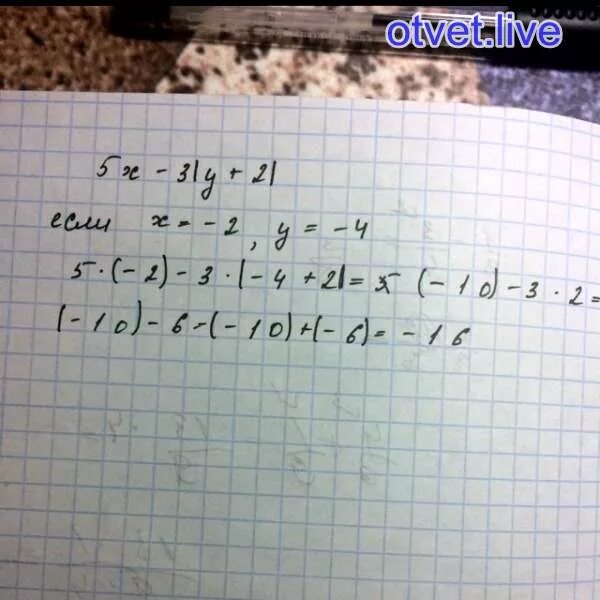 otvet.live
5x - 3|y + 2|
если x = -2, y = -4
5·(-2) - 3·|-4 + 2| = (-10) - 3·2 =
(-10) - 6 - (-10) + (-6) = -16